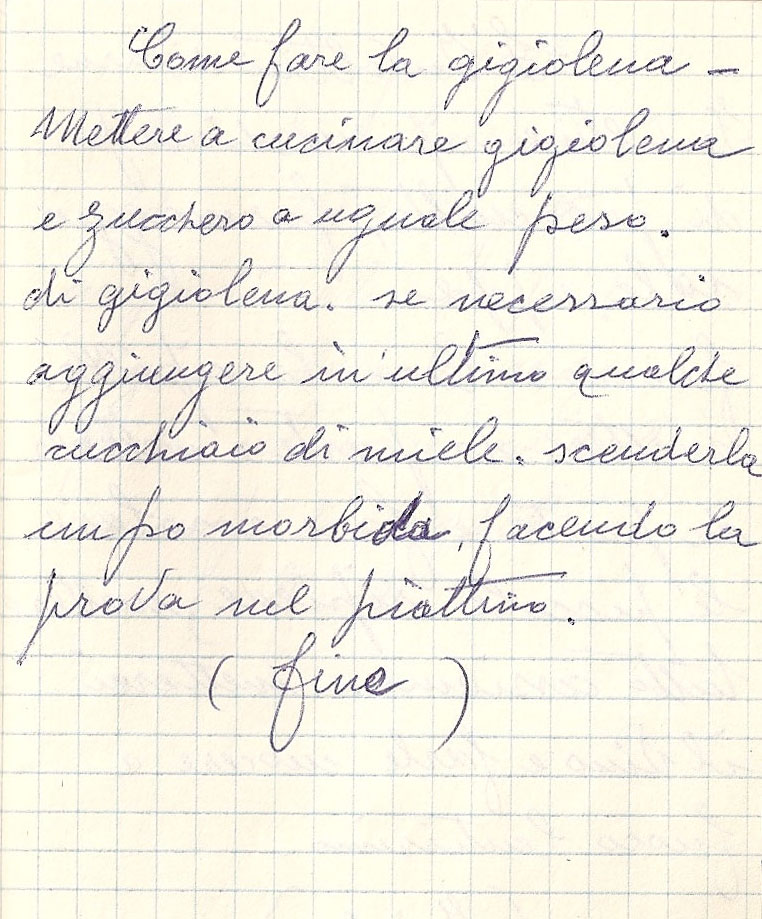 Come fare la gigiolena -
Mettere a cucinare gigiolena
e zucchero a uguale peso.
di gigiolena. se necessario
aggiungere in ultimo qualche
cucchiaio di miele. scenderla
un po morbida, facendo la
prova nel piattino.
( fine )